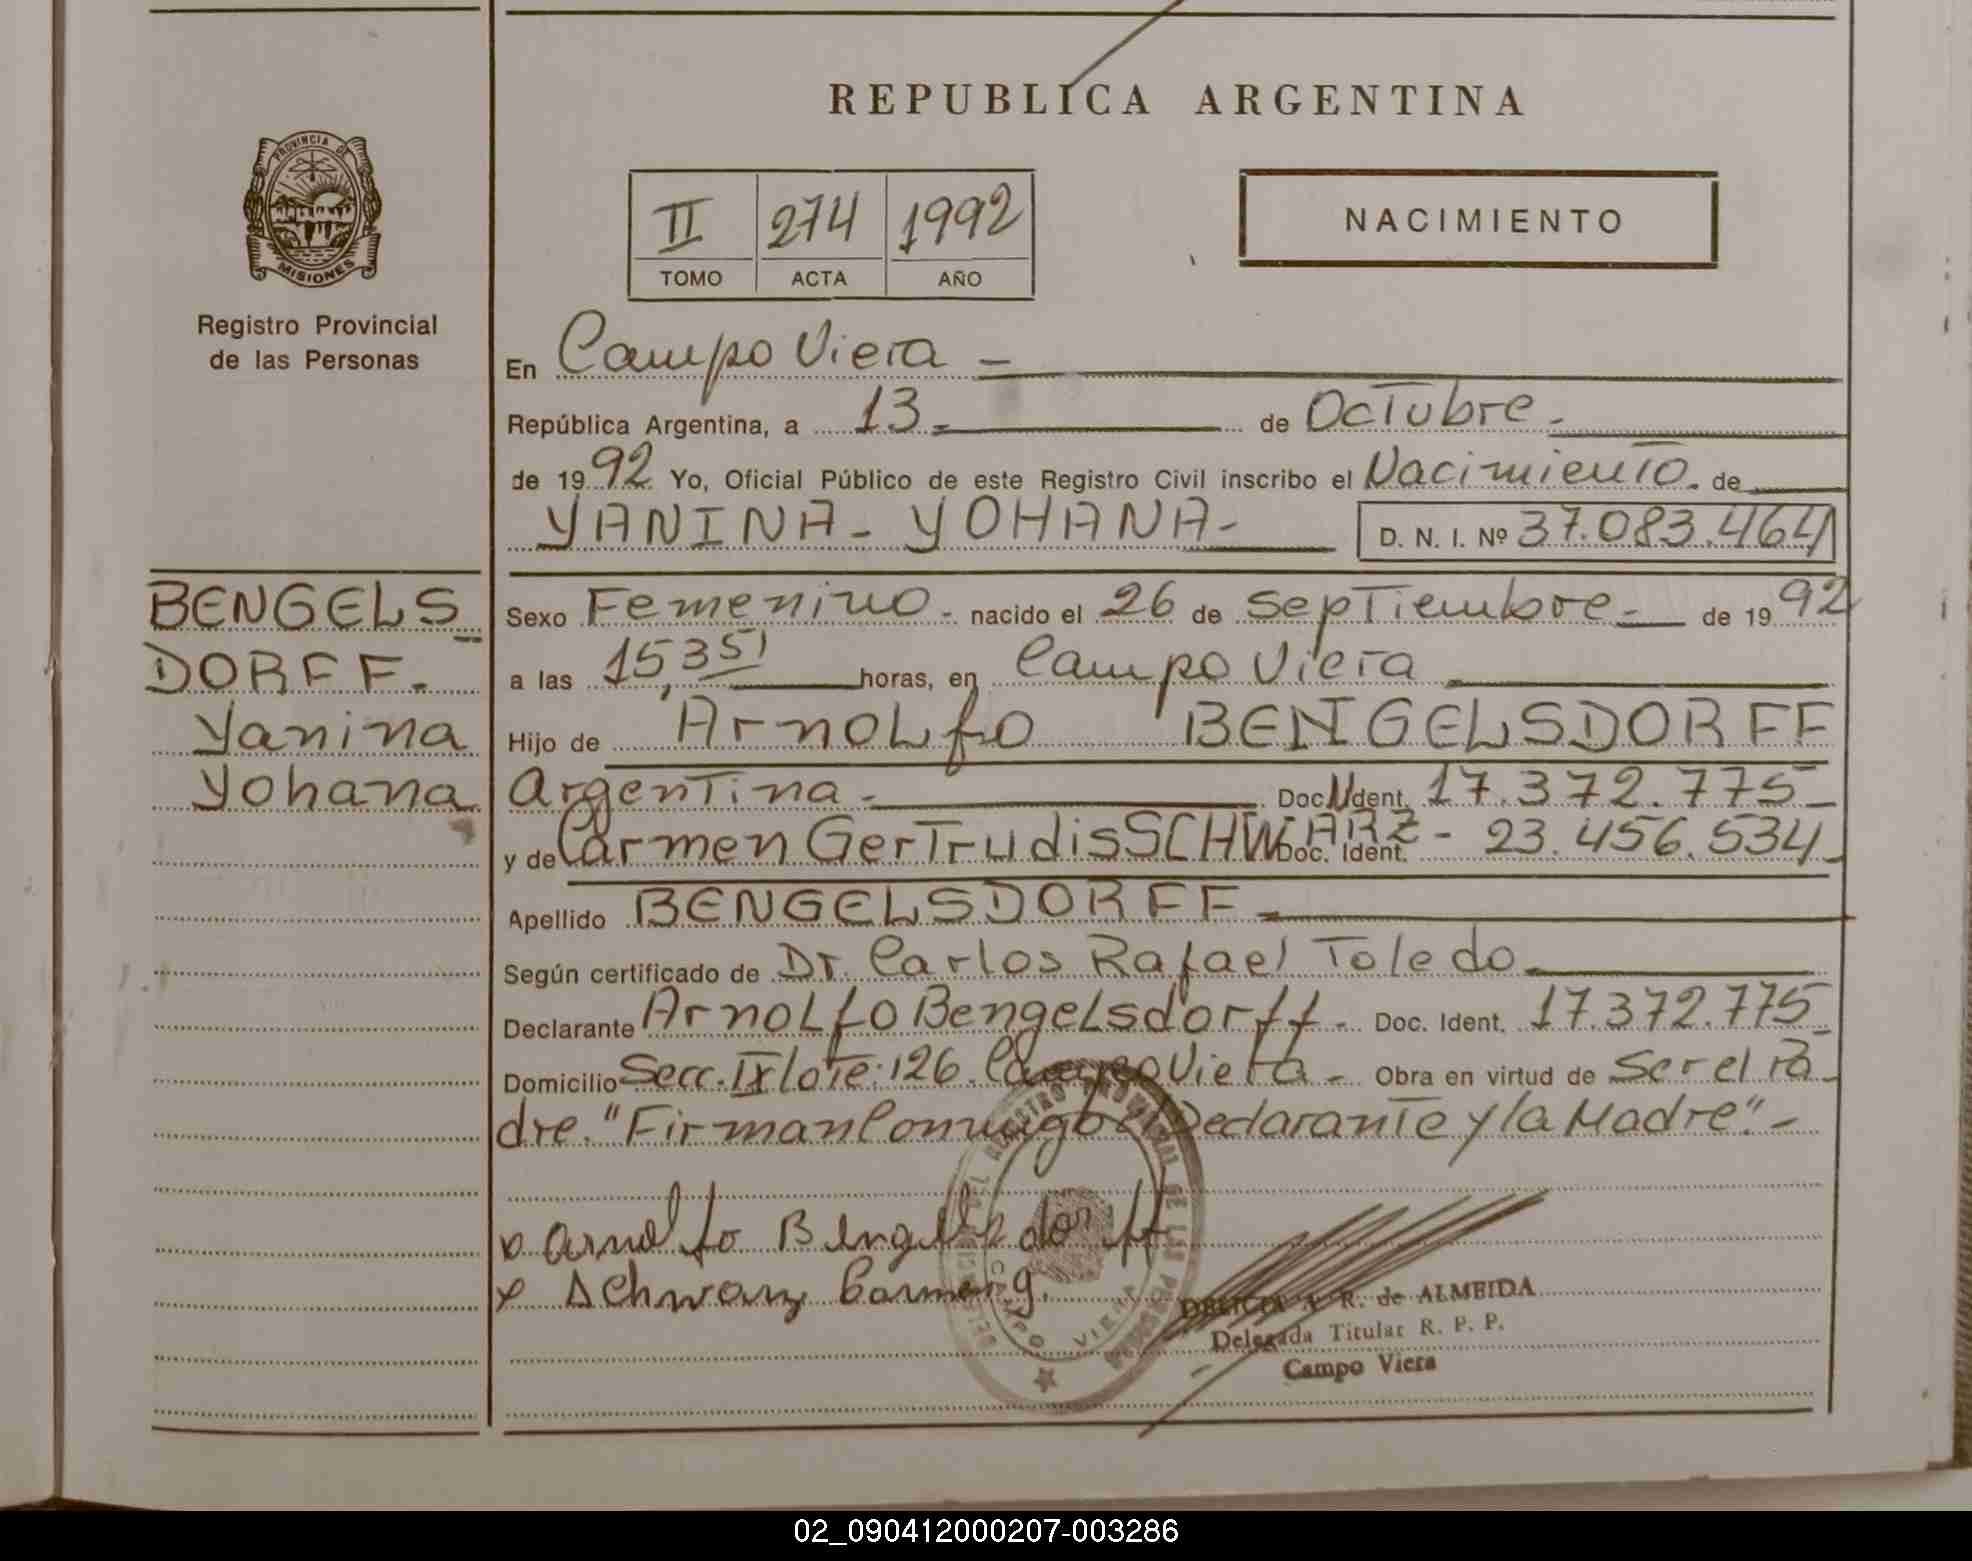 REPUBLICA ARGENTINA
PROVINCIA DE
MISIONES
Registro Provincial
de las Personas
II 274 1992
TOMO ACTA AÑO
NACIMIENTO
En Campo Viera -
República Argentina, a 13 - de Octubre -
de 1992 Yo, Oficial Público de este Registro Civil inscribo el Nacimiento. de
YANINA - YOHANA - D. N. I. Nº 37.083.464
BENGELS
DORFF.
Yanina
Yohana
Sexo Femenino - nacido el 26 de Septiembre - de 1992
a las 15,35' horas, en Campo Viera
Hijo de Arnolfo BENGELSDORFF
Argentina - Doc. Ident. 17.372.775 -
y de Carmen Gertrudis SCHWARZ - Doc. Ident. 23.456.534 -
Apellido BENGELSDORFF -
Según certificado de Dr. Carlos Rafael Toledo -
Declarante Arnolfo Bengelsdorff - Doc. Ident. 17.372.775 -
Domicilio Secc. IX lote: 126. Campo Viera - Obra en virtud de Ser el Pa-
dre. "Firman Conmigo el Declarante y la Madre". -
Arnolfo Bengelsdorff
x Schwarz Carmen g.
CAMPO VIERA
R. de ALMEIDA
Delegada Titular R. P. P.
Campo Viera
02_090412000207-003286